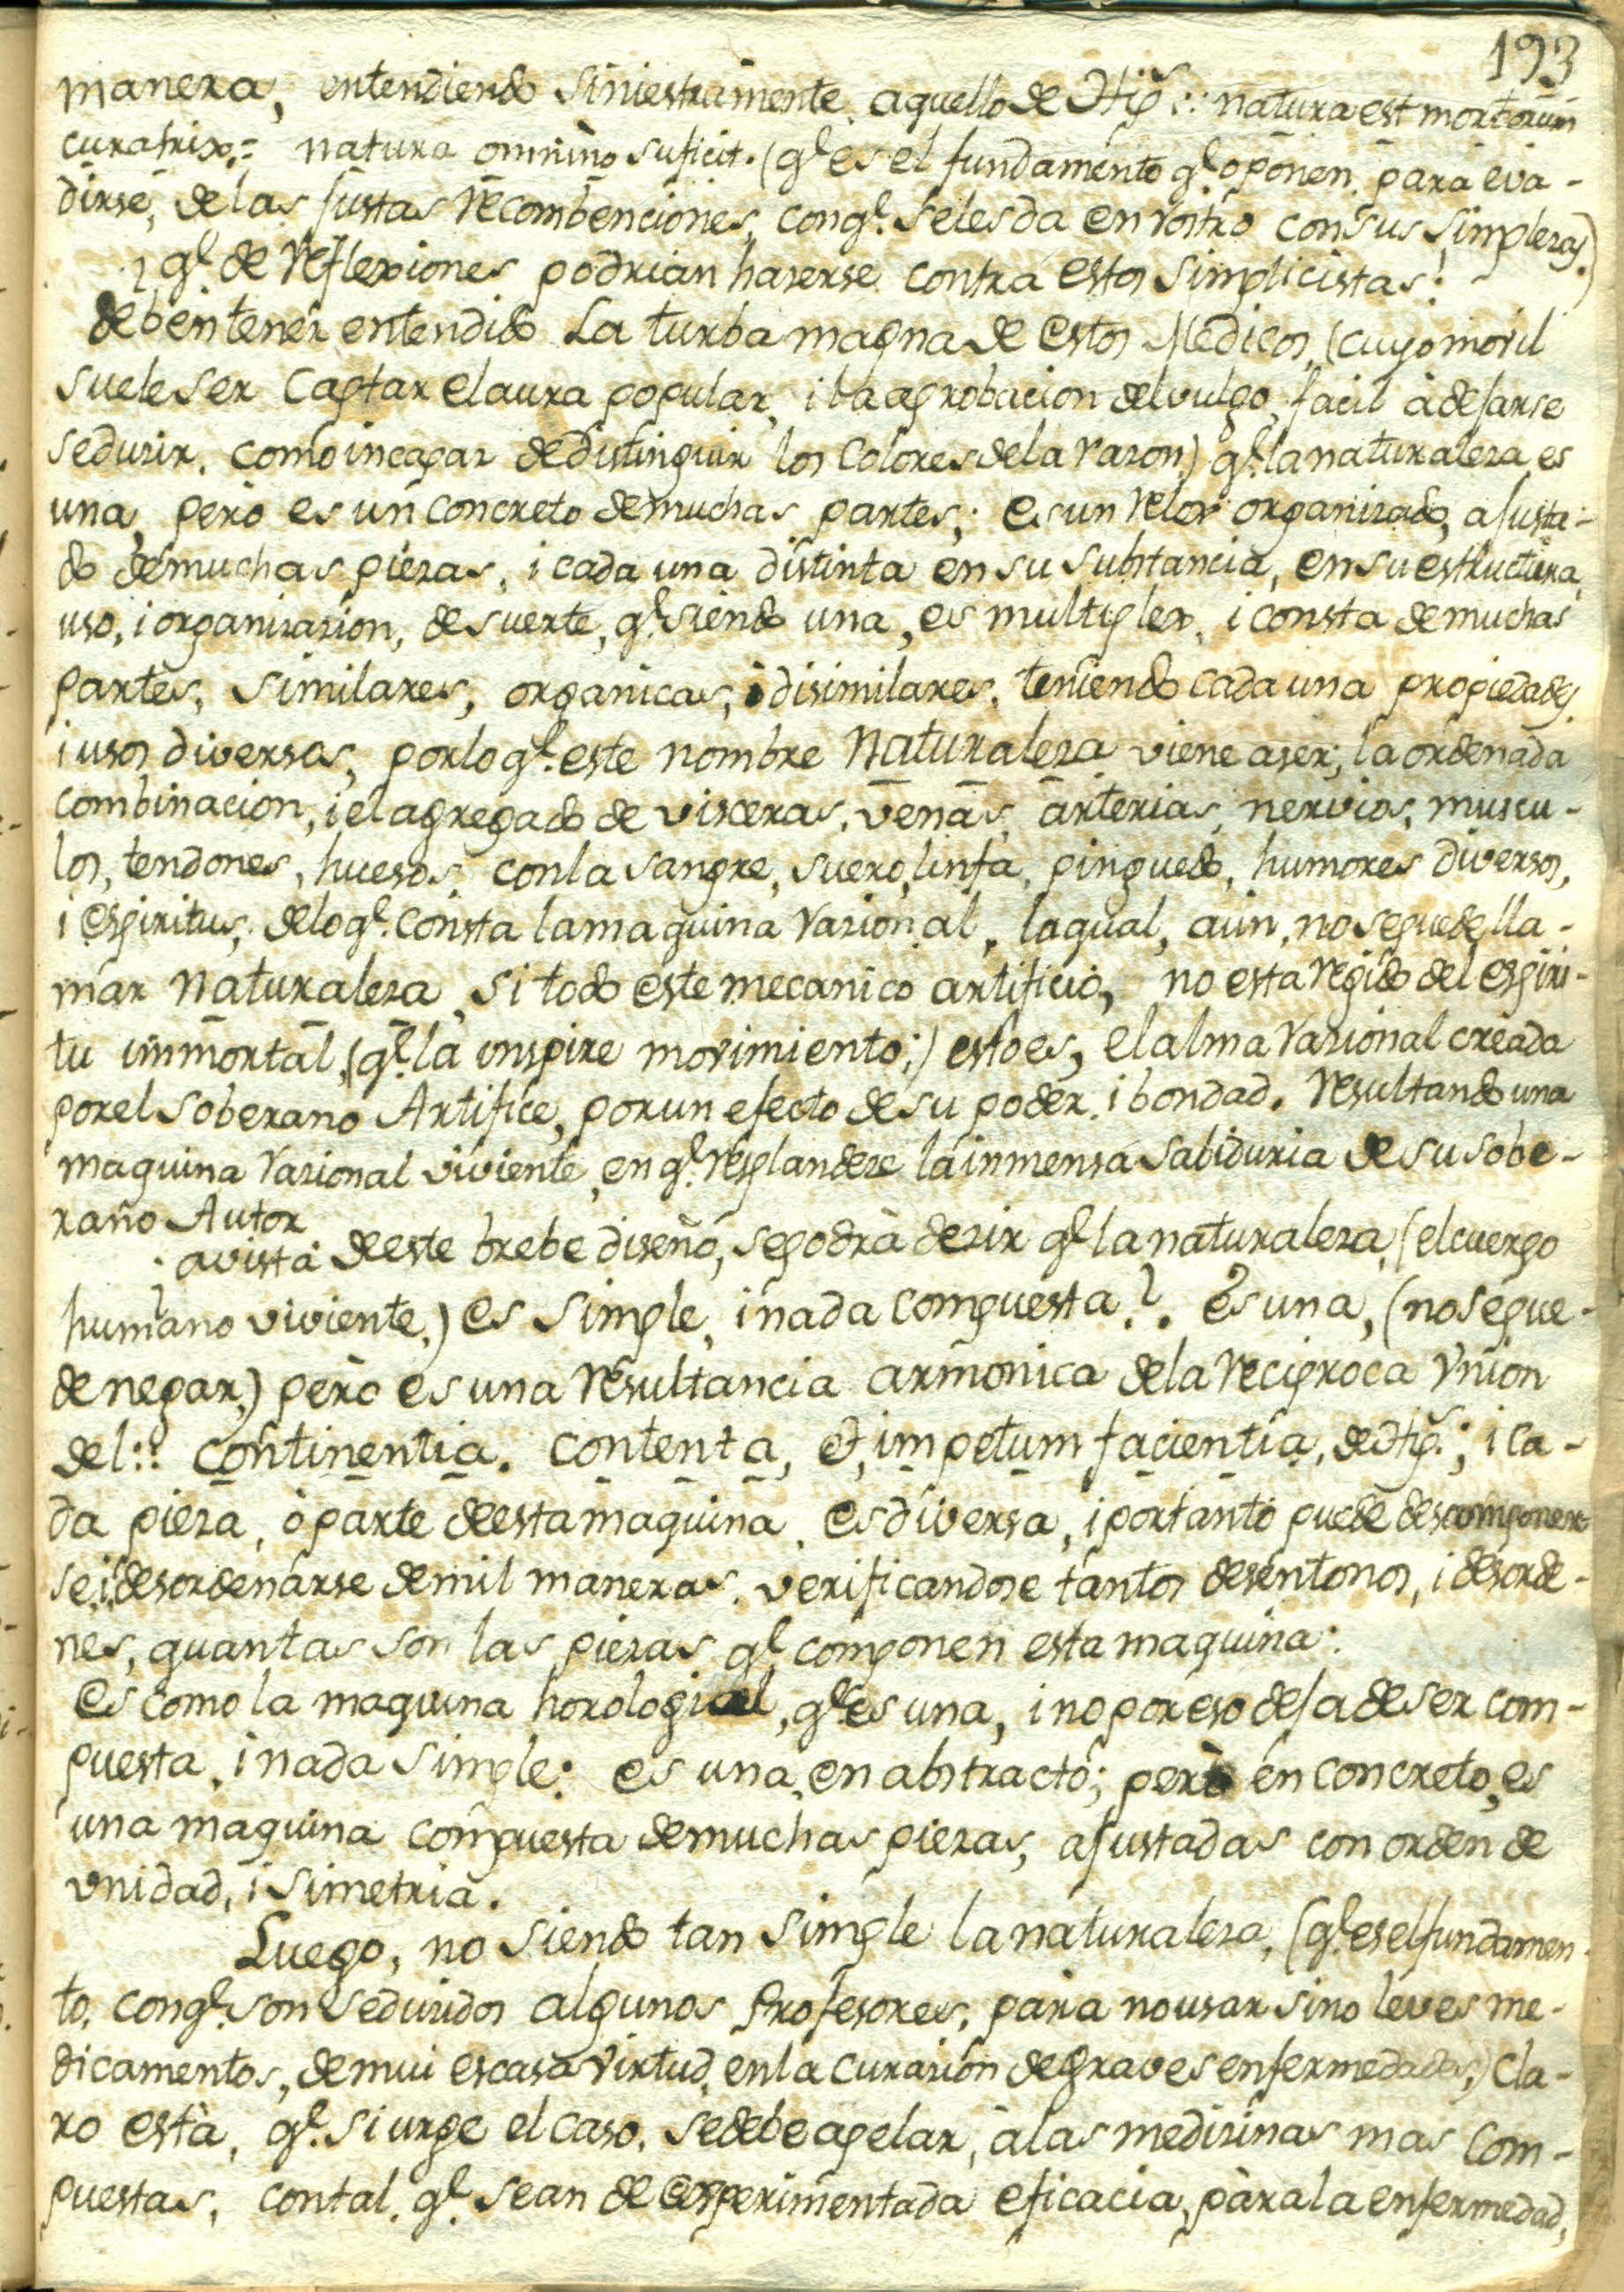 193
manera, entendiendo siniestramente aquello de Hip.s:: natura est morborum
curatrix.= natura omnino suficit. (q.e es el fundamento q.e oponen para eva-
dirse, de las justas recombenciones, con q.e se les da en rostro con sus simplezas.)
¿ q.e de reflexiones podrian hazerse contra estos simplicistas!
deben tener entendido La turba magna de estos Medicos, (cuyo movil
suele ser captar el aura popular, i la aprobacion del vulgo, facil à dejarse
seduzir, como incapaz de distinguir los colores de la razon) q.e la naturaleza es
una, pero es un concreto de muchas partes; es un relox organizado, ajusta-
do de muchas piezas, i cada una distinta en su substancia, en su estructura,
uso, i organizazion, de suerte, q.e siendo una, es multiplex, i consta de muchas
partes, similares, organicas, i disimilares, teniendo cada una propiedades
i usos diversos, por lo q.e este nombre Naturaleza viene a ser, la ordenada
combinacion, i el agregado de visceras, venas, arterias, nervios, muscu-
los, tendones, huesos, con la sangre, suero, linfa, pinguedo, humores diversos,
i espiritus, de lo q.e consta la maquina razional, la qual, aun, no se puede lla-
mar Naturaleza, si todo este mecanico artificio, no esta regido del espiri-
tu immortal, (q.e la inspire movimiento;) esto es, el alma razional creada
por el soberano Artifice, por un efecto de su poder, i bondad. resultando una
maquina razional viviente, en q.e resplandeze la inmensa sabiduria de su sobe-
rano Autor
avista de este brebe diseño, se podrà dezir q.e la naturaleza, (el cuerpo
humano viviente,) es simple, i nada compuesta?. es una, (no se pue-
de negar,) però es una resultancia armonica de la reciproca Vnion
del:: continentia, contenta, et, impetum facientia, de Hip.s; i ca-
da pieza, ò parte de esta maquina, es diversa, i por tanto puede descomponer-
se i desordenarse de mil maneras, verificandose tantos desentonos, i desorde-
nes, quantas son las piezas q.e componen esta maquina:
es como la maquina horologial, q.e es una, i no por eso deja de ser com-
puesta, i nada simple: es una, en abstracto; però en concreto, es
una maquina compuesta de muchas piezas, ajustadas con orden de
vnidad, i simetria.
Luego, no siendo tan simple la naturaleza, (q.e es el fundamen-
to, con q.e son seduzidos algunos Profesores, para no usar sino leves me-
dicamentos, de mui escasa virtud, en la curazion de graves enfermedades,) cla-
ro està, q.e si urge el caso, se debe apelar, à las medizinas mas com-
puestas, con tal, q.e sean de experimentada eficacia, para la enfermedad,